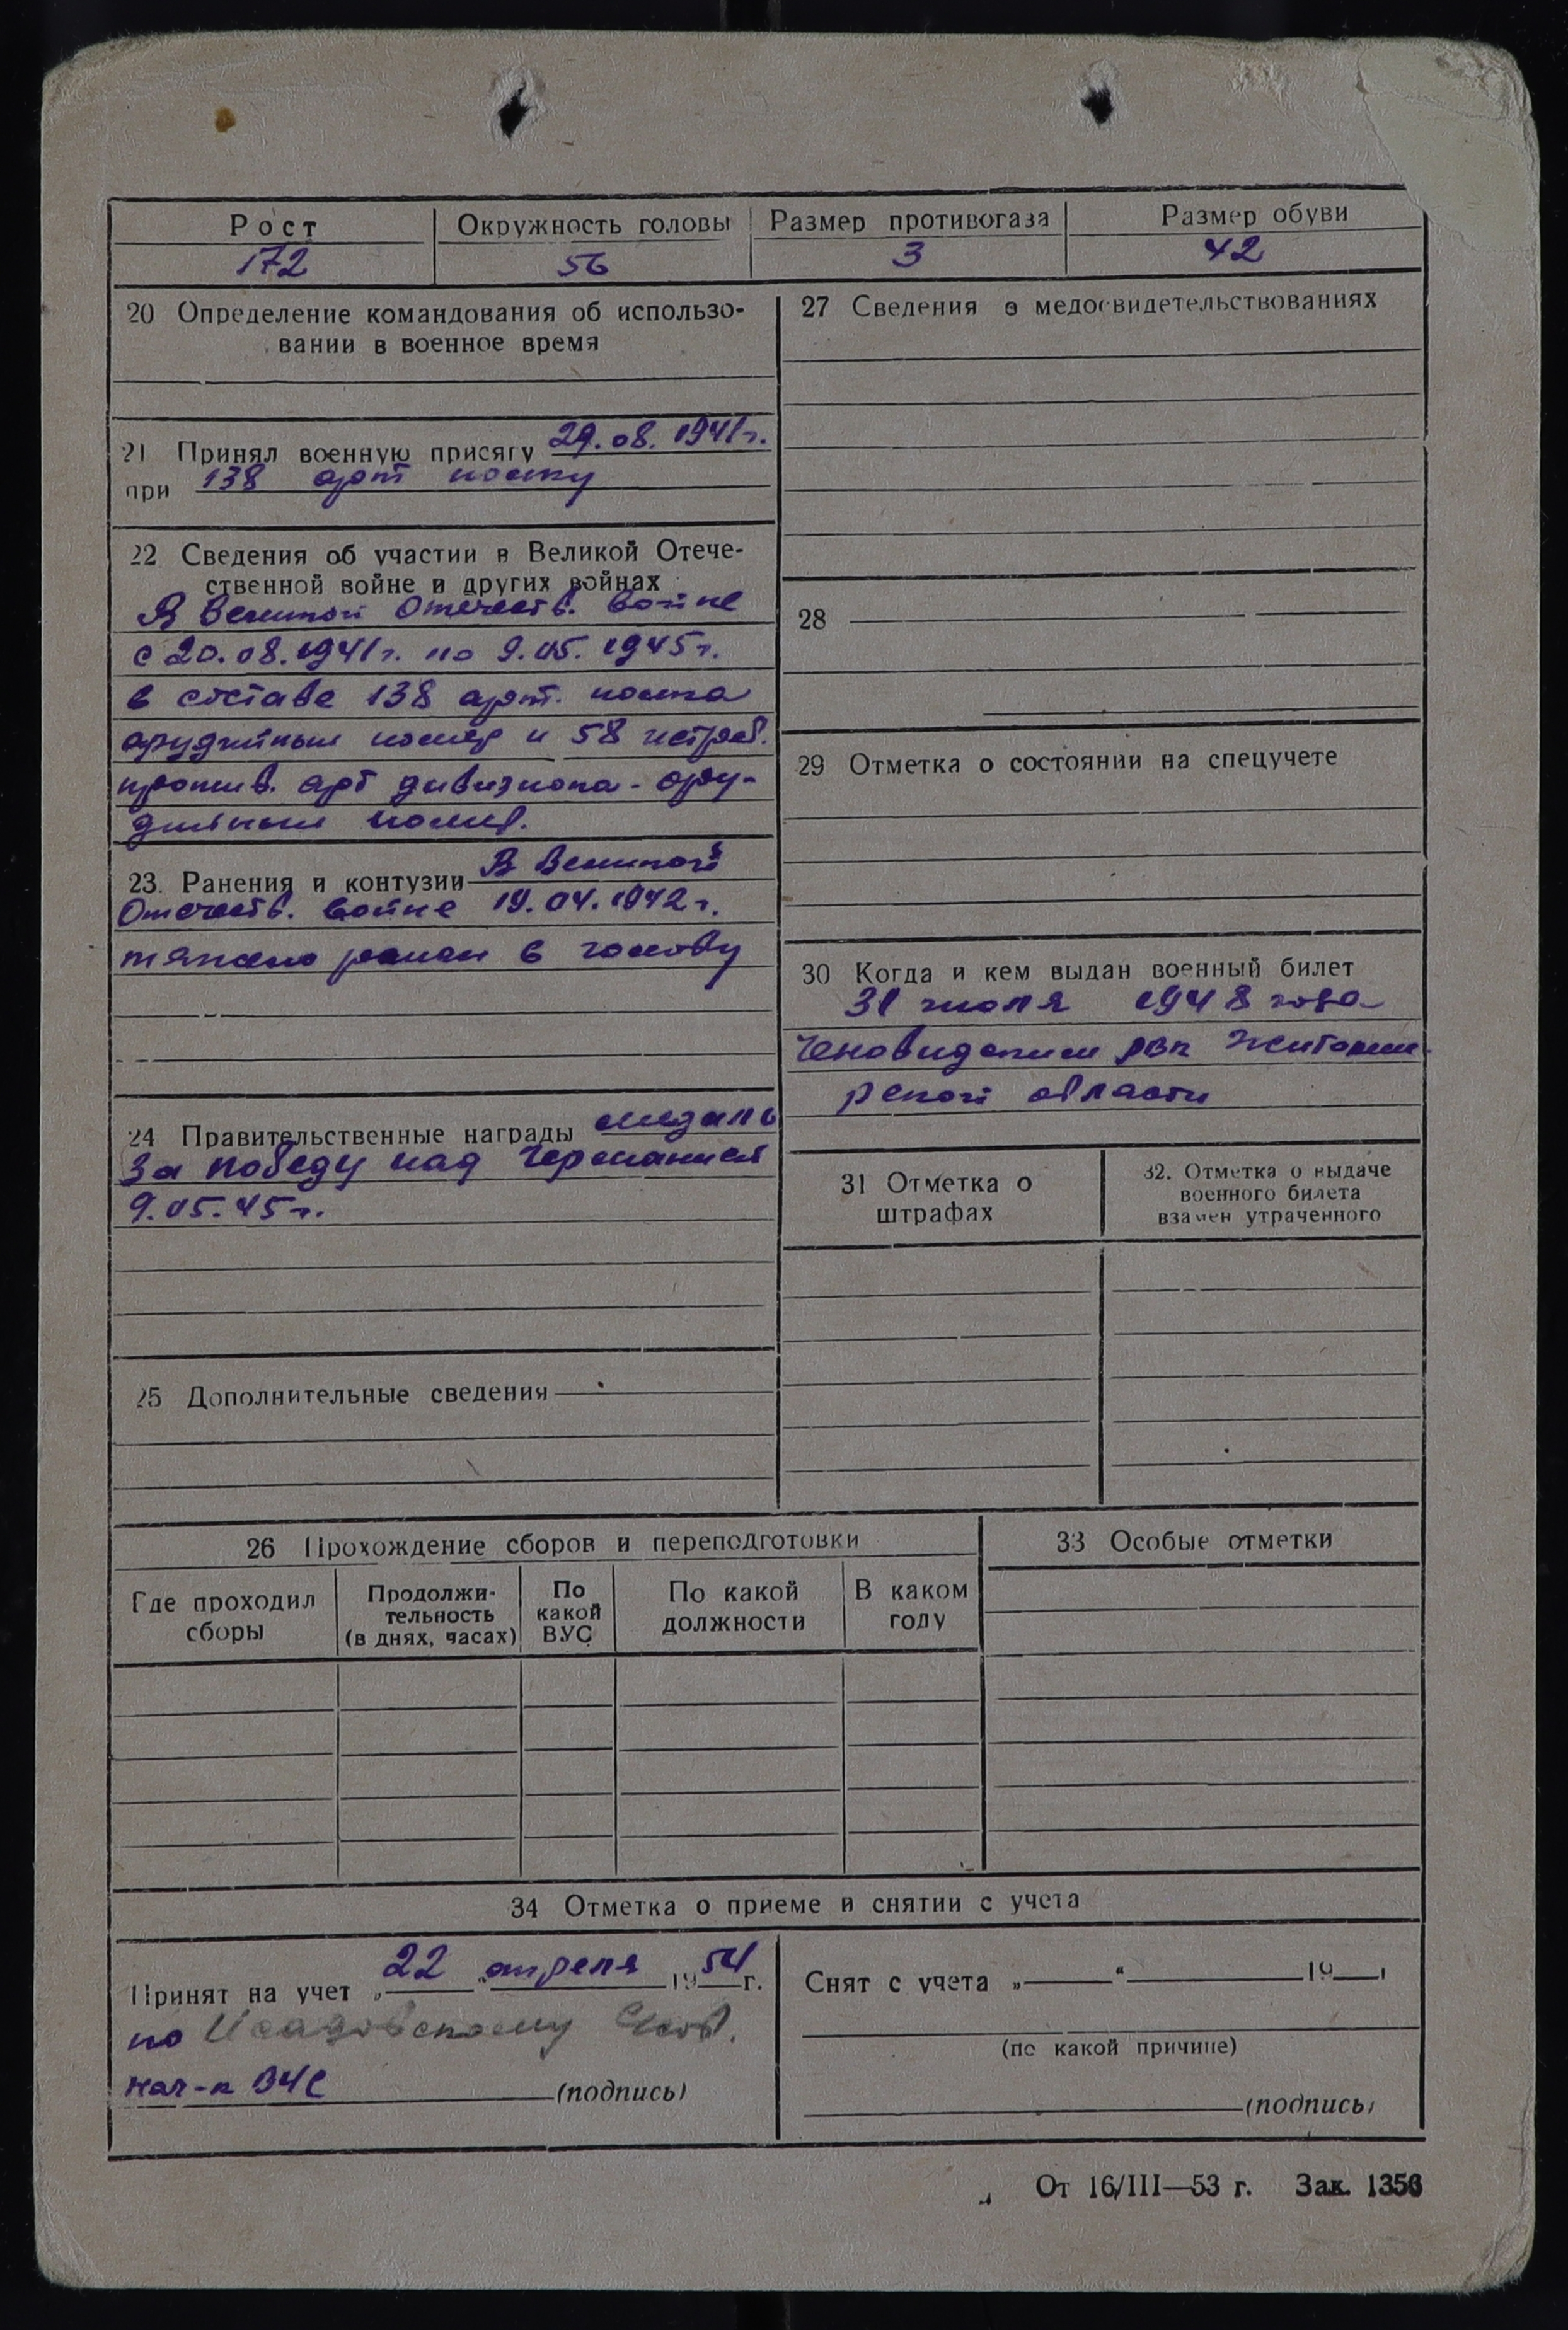 Рост
Окружность головы
Размер противогаза
Размер обуви
172
56
3
42
20 Определение командования об использо-
вании в военное время
21 Принял военную присягу 29.08.1941г.
при 138 арт полку
22 Сведения об участии в Великой Отече-
ственной войне и других войнах
В Великой Отечеств. войне
с 20.08.1941г. по 9.05.1945г.
в составе 138 арт. полка
орудийным номер и 58 истреб.
против. арт дивизиона - ору-
дийным номер.
23. Ранения и контузии В Великой
Отечеств. войне 19.04.1942г.
тяжело ранен в голову
24 Правительственные награды медаль
За победу над Германией
9.05.45г.
25 Дополнительные сведения
27 Сведения о медосвидетельствованиях
28
29 Отметка о состоянии на спецучете
30 Когда и кем выдан военный билет
31 июля 1948 года
РВК Житоми
рской области
31 Отметка о
штрафах
32. Отметка о выдаче
военного билета
взамен утраченного
26 Прохождение сборов и переподготовки
Где проходил
сборы
Продолжи-
тельность
(в днях, часах)
По
какой
ВУС
По какой
должности
В каком
году
33 Особые отметки
34 Отметка о приеме и снятии с учета
Принят на учет „22" апреля 1954г.
по
нач-к ВУС (подпись)
Снят с учета „ " 19 г
(по какой причине)
(подпись)
От 16/III—53 г. Зак. 1356